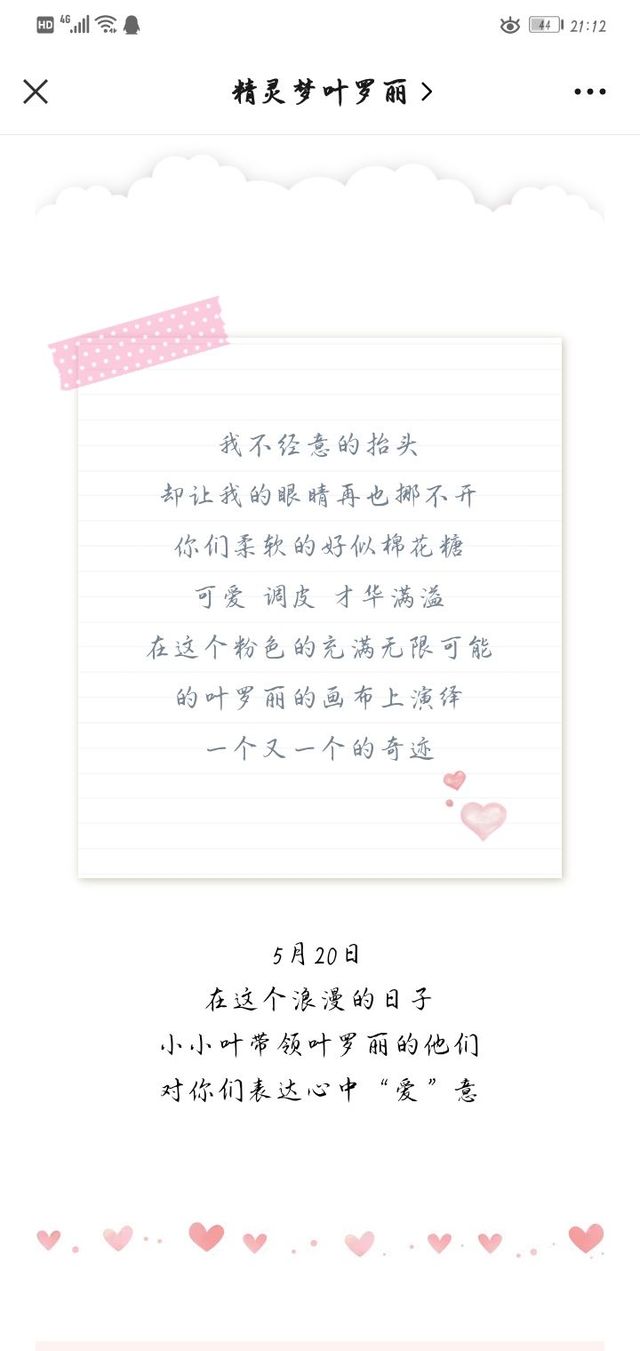 HD 4G 44 21:12
精灵梦叶罗丽
我不经意的抬头
却让我的眼睛再也挪不开
你们柔软的好似棉花糖
可爱 调皮 才华满溢
在这个粉色的充满无限可能
的叶罗丽的画布上演绎
一个又一个的奇迹
5月20日
在这个浪漫的日子
小小叶带领叶罗丽的他们
对你们表达心中“爱”意